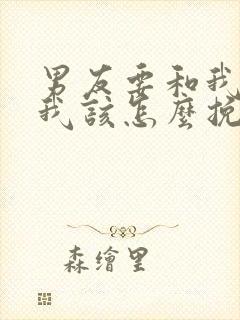 男友要和我
我該怎麼挽
森繪里